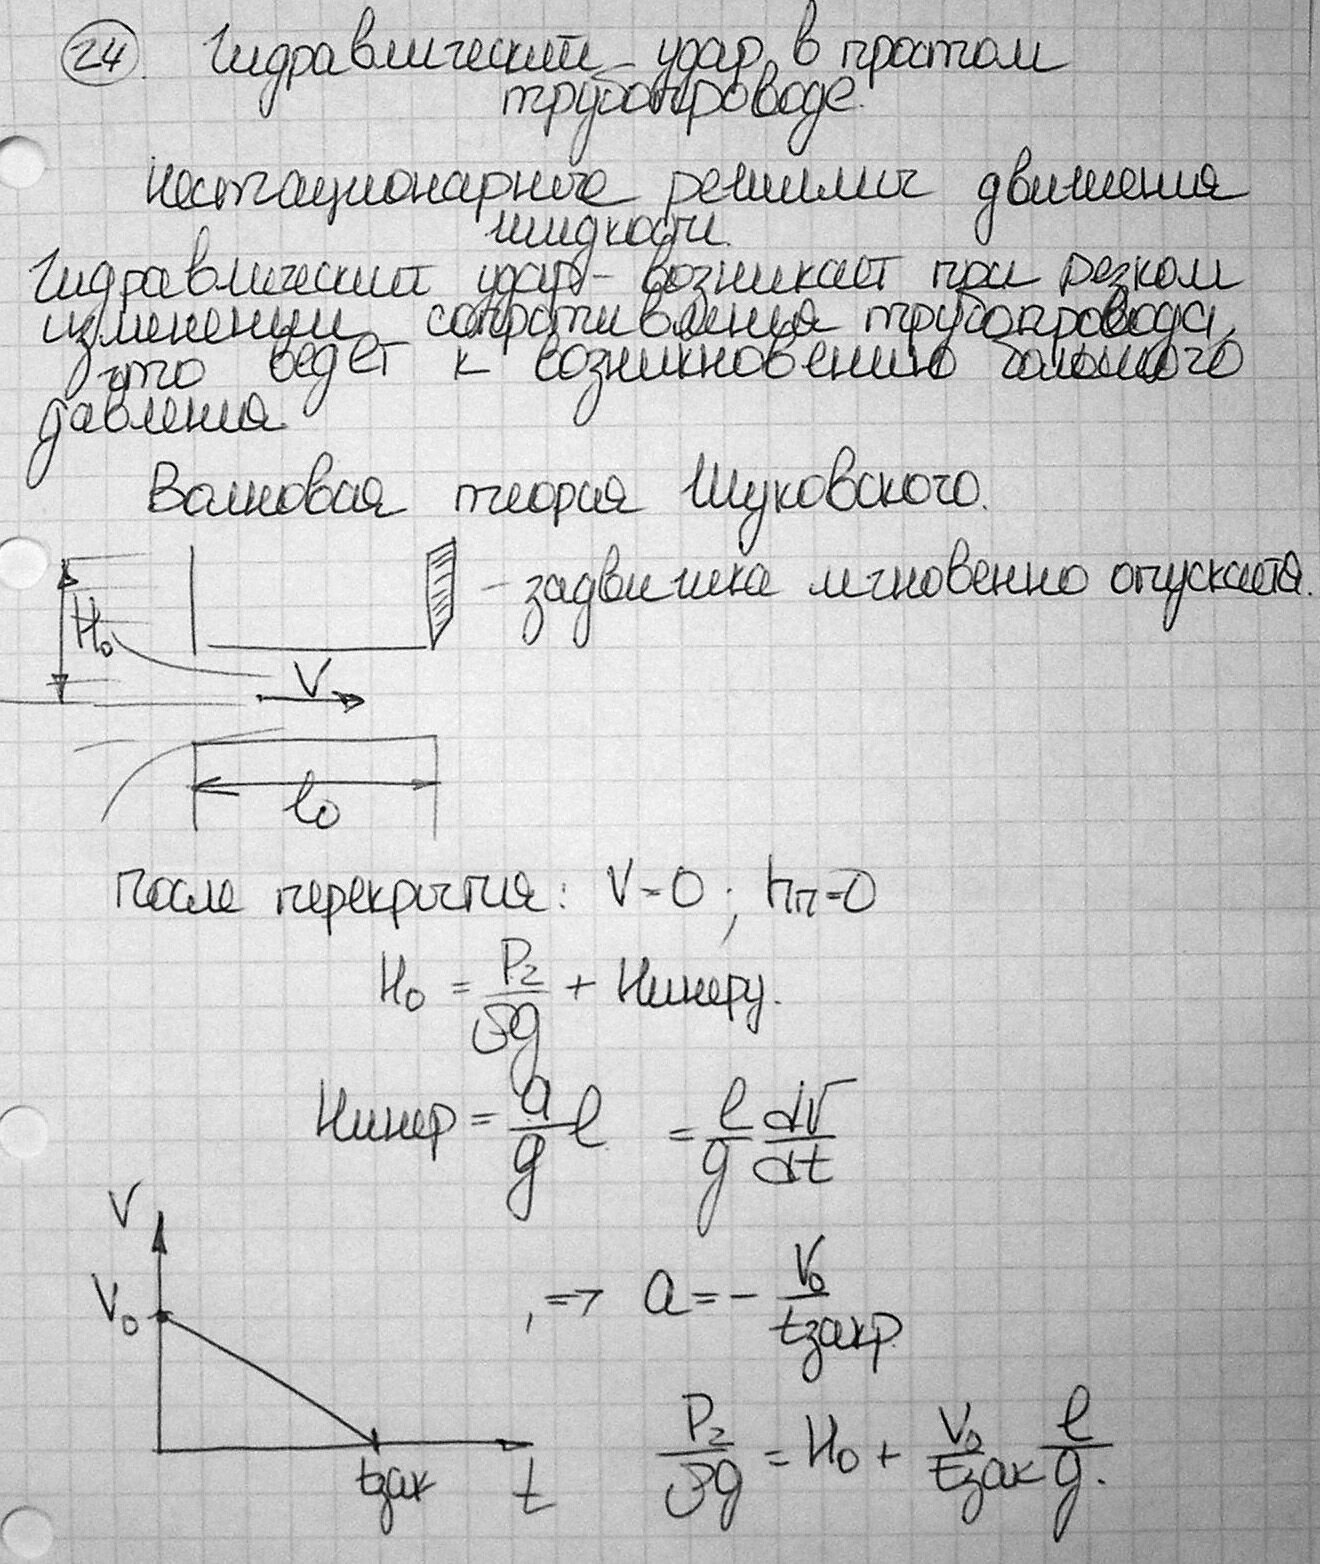 24. Гидравлический удар в простом
трубопроводе.
Нестационарные режимы движения
жидкости.
Гидравлический удар - возникает при резком
изменении сопротивления трубопровода,
что ведет к возникновению большого
давления
Волновая теория Жуковского.
- задвижка мгновенно опускается.
H₀
V
l₀
После перекрытия: V=0; hп=0
H₀ = P₂/ρg + Hинерц.
Hинер = a/g l = l/g dV/dt
V
V₀
, => a = - V₀/tзакр.
tзак
t
P₂/ρg = H₀ + V₀/tзак l/g.